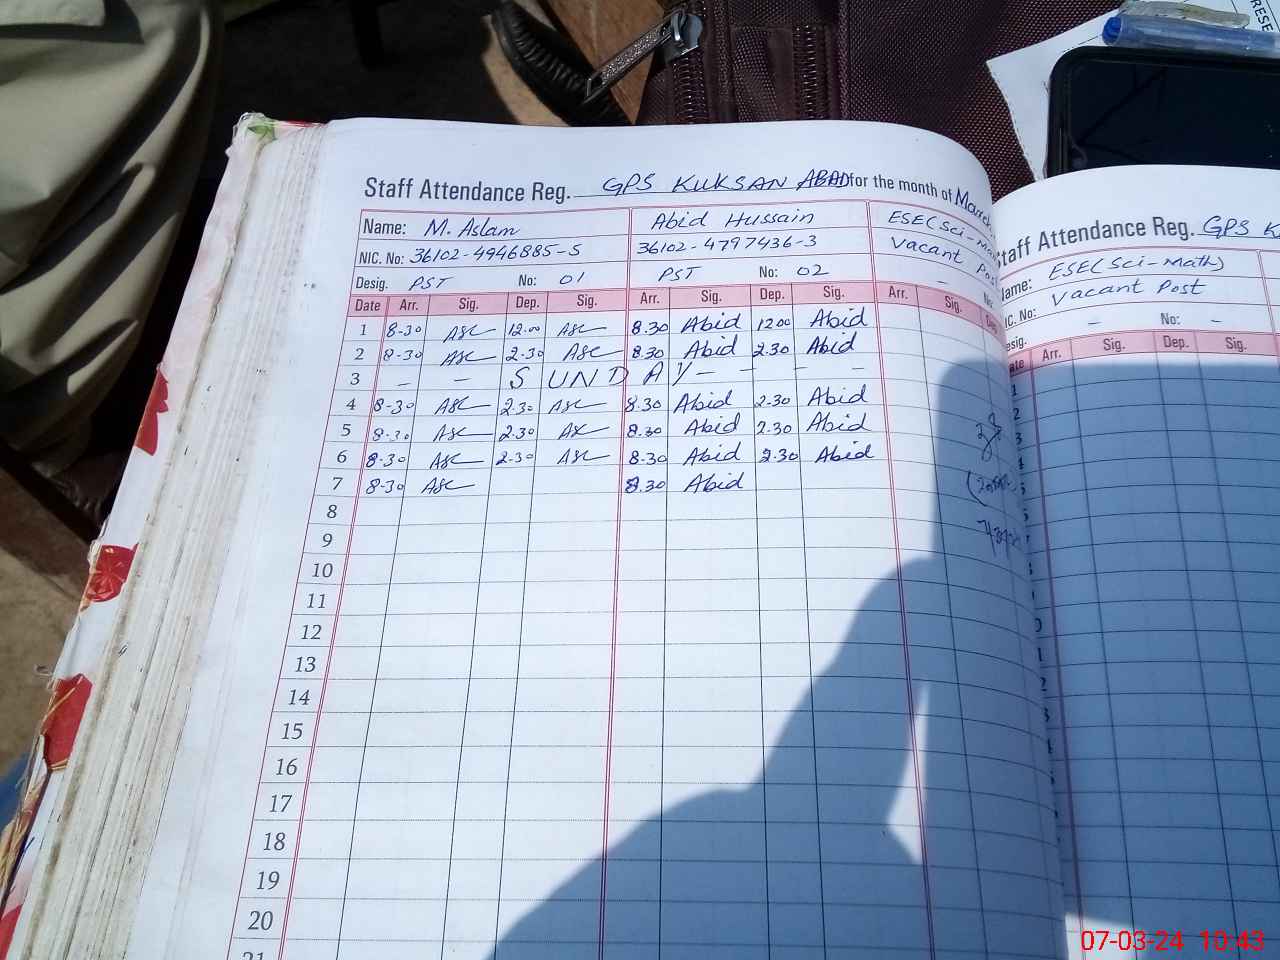 RESE
Staff Attendance Reg. GPS KUKSAN ABAD for the month of March
Name: M. Aslam Abid Hussain ESE(Sci-Ma
NIC. No: 36102-4946885-5 36102-4797436-3 Vacant Post
Desig. PST No: 01 PST No: 02 - No
Date Arr. Sig. Dep. Sig. Arr. Sig. Dep. Sig. Arr. Sig. Dep
1 8-30 ASL 12.00 ASL 8.30 Abid 12 00 Abid
2 8-30 ASL 2-30 ASL 8.30 Abid 2.30 Abid
3 - - SUNDAY - - - -
4 8-30 ASL 2.30 ASL 8.30 Abid 2-30 Abid
5 8-30 ASL 2.30 ASL 8.30 Abid 2.30 Abid
6 8-30 ASL 2-30 ASL 8-30 Abid 2.30 Abid
7 8-30 ASL 8.30 Abid
8
9
10
11
12
13
14
15
16
17
18
19
20
21
Staff Attendance Reg. GPS K
Name: ESE(Sci-Math)
NIC. No: Vacant Post
Desig. - No: -
Date Arr. Sig. Dep. Sig.
07-03-24 10:43